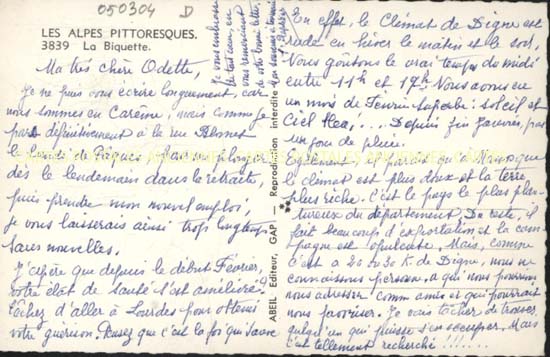 050304 D
LES ALPES PITTORESQUES.
3839 La Biquette.
Ma très chère Odette,
Je ne puis vous écrire longuement, car
nous sommes en Carême, mais comme je
pars définitivement à la rue
le Lundi de Pâques pour me plonger
dès le lendemain dans la retraite,
puis prendre mon nouvel emploi,
Je vous laisserais ainsi trop longtemps
sans nouvelles.
J'espère que depuis le début Février,
votre état de santé s'est amélioré.
Tâchez d'aller à Lourdes pour obtenir
votre guérison. Pensez que c'est la foi qui sauve
ABEIL Editeur, GAP - Reproduction interdite
En effet, le Climat de Digne est
rude en hiver le matin et le soir,
Nous goûtons le vrai temps du midi
entre 11h et 17h. Nous avons eu
un mois de Février superbe: soleil et
Ciel bleu!... Depuis fin Janvier, pas
un jour de pluie.
Egalement il paraît qu'à Manosque
le climat est plus doux et la terre
plus riche. C'est le pays le plus plan-
tureux du département. Du reste, il
fait beaucoup d'exportation et la cam-
pagne est opulente. Mais, comme
c'est à 20 ou 30 K de Digne, nous ne
connaissons personne, à qui nous pourrions
nous adresser comme amis et qui pourrait
nous favoriser. Je vais tâcher de trouver
quelqu'un qui puisse s'en occuper. Mais
c'est tellement recherché!!!....
Je vous embrasse
de tout cœur, en
vous remerciant
de votre bonne lettre,